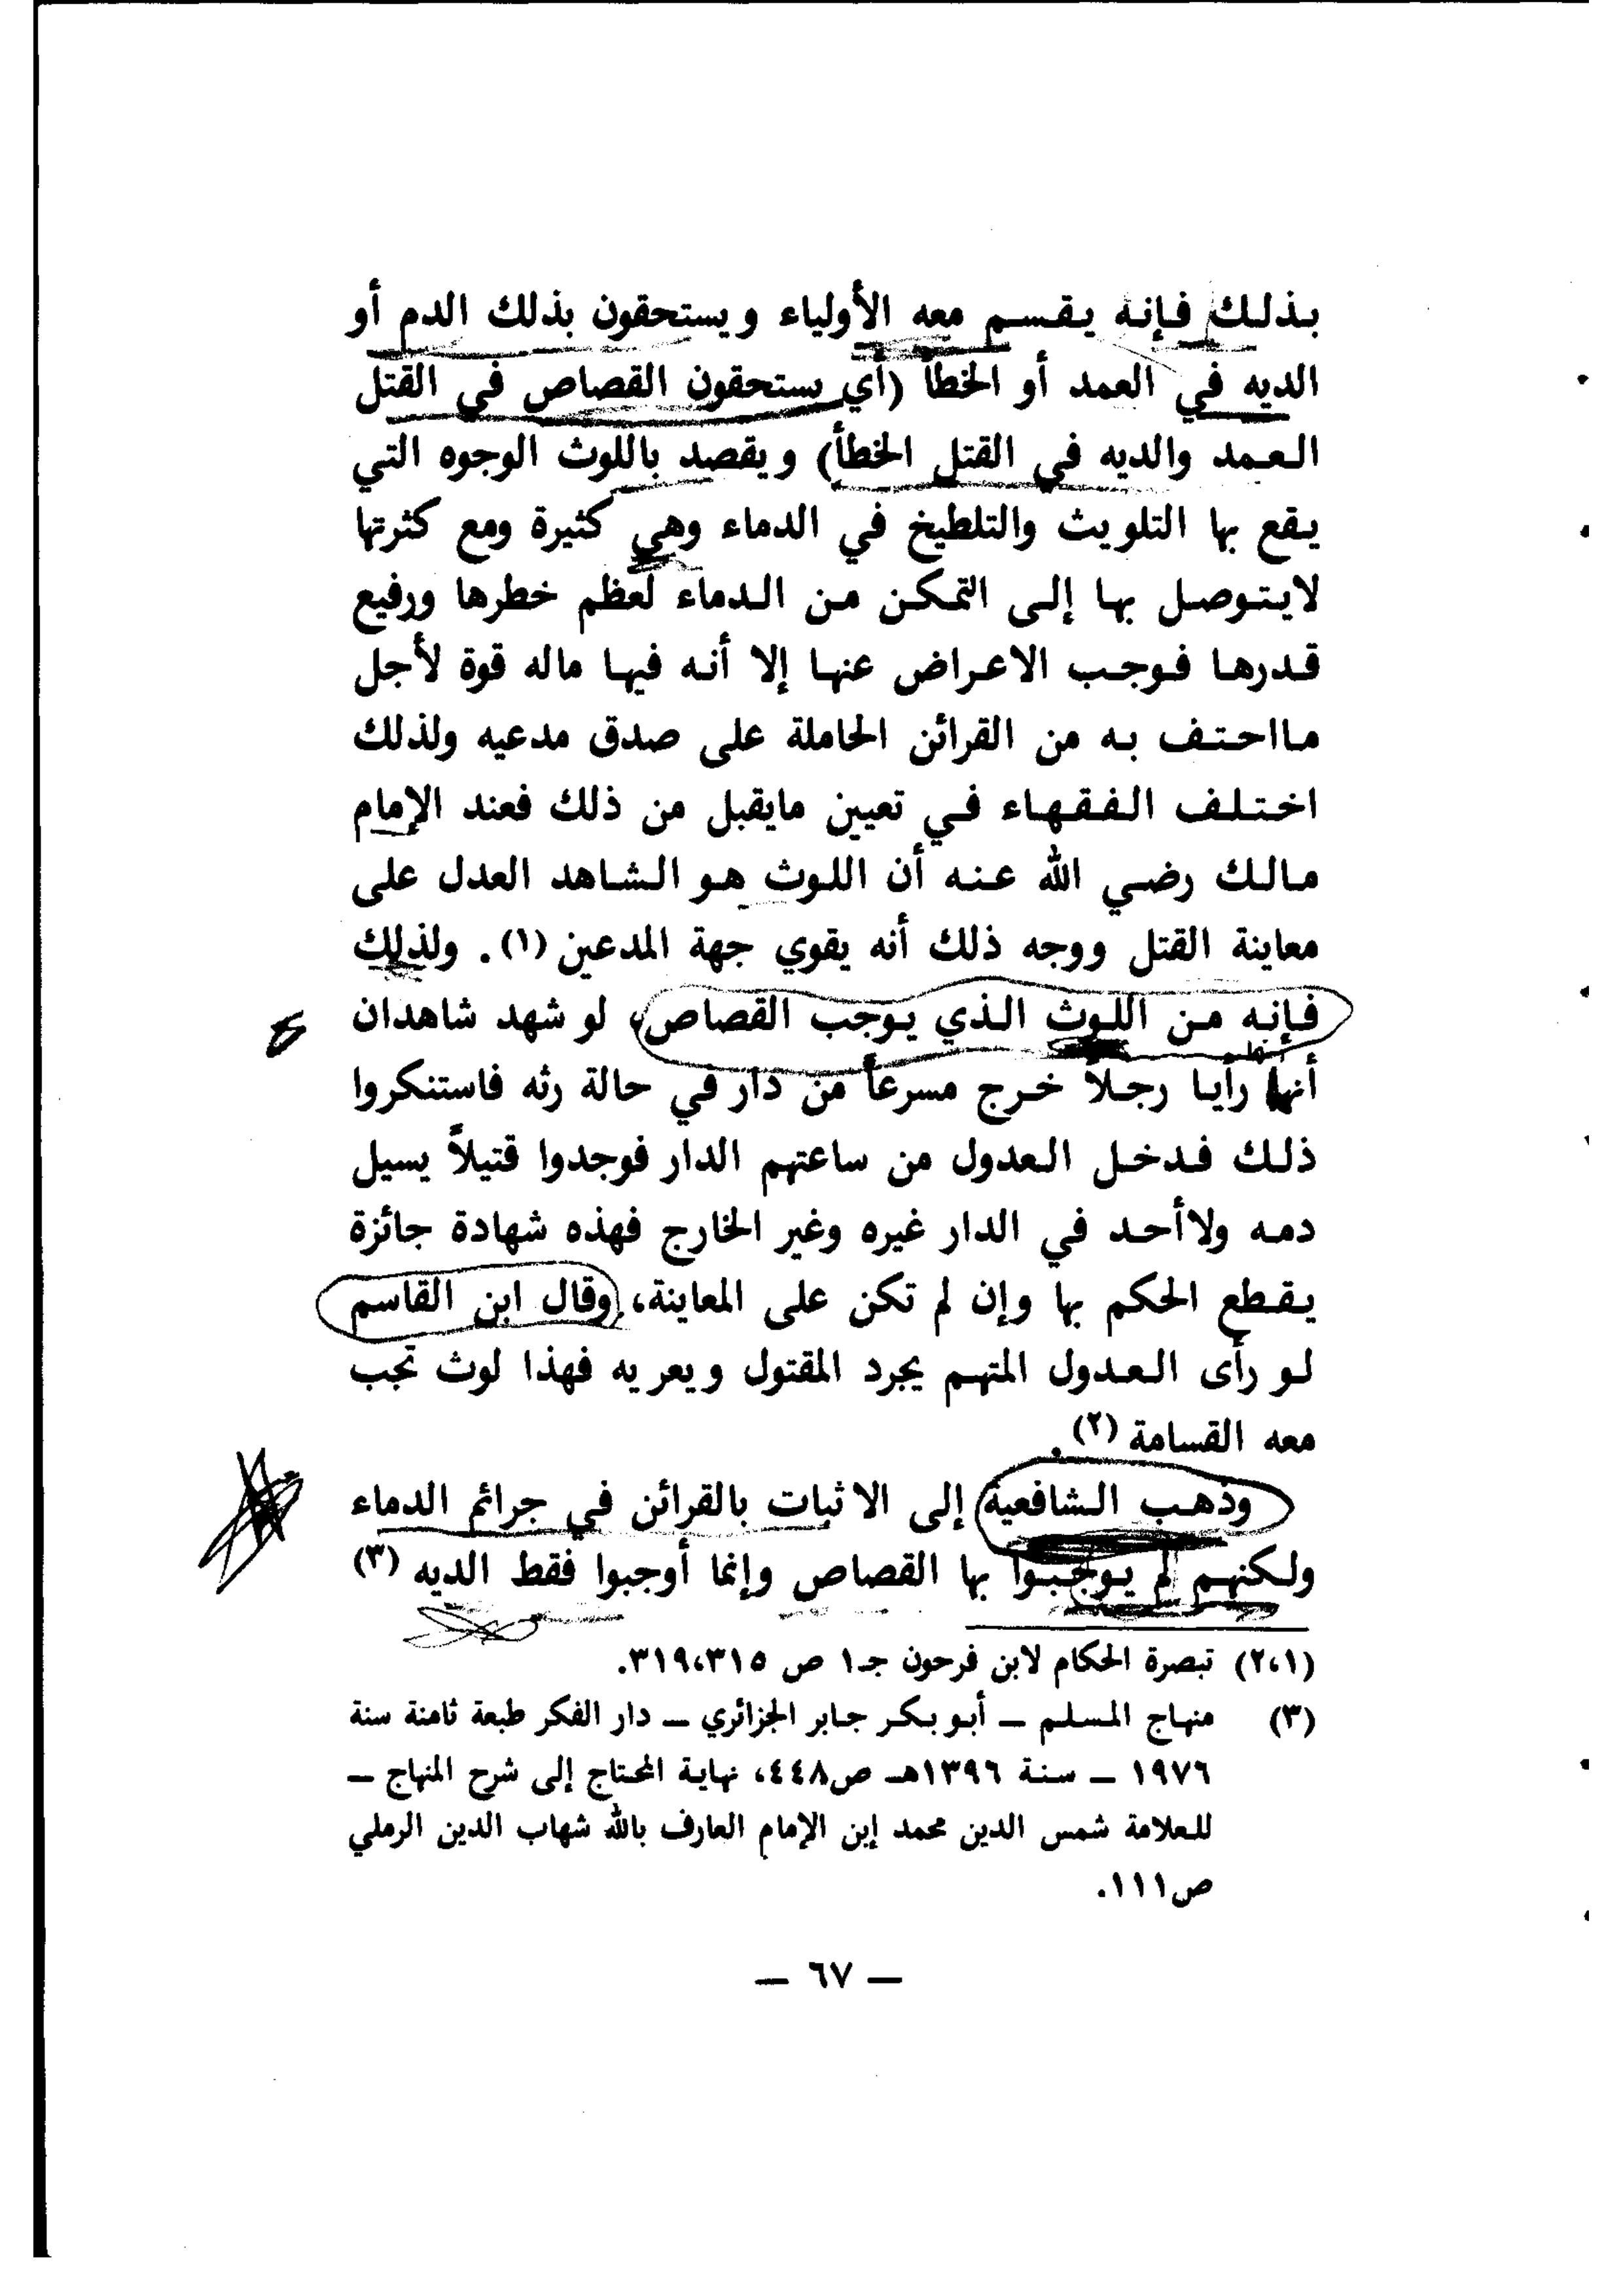 بذلك فإنه يقسم معه الأولياء ويستحقون بذلك الدم أو
الديه في العمد أو الخطأ (أي يستحقون القصاص في القتل
العمد والديه في القتل الخطأ) ويقصد باللوث الوجوه التي
يقع بها التلويث والتلطيخ في الدماء وهي كثيرة ومع كثرتها
لايتوصل بها إلى التمكن من الدماء لعظم خطرها ورفيع
قدرها فوجب الاعراض عنها إلا أنه فيها ماله قوة لأجل
مااحتف به من القرائن الحاملة على صدق مدعيه ولذلك
اختلف الفقهاء في تعيين مايقبل من ذلك فعند الإمام
مالك رضي الله عنه أن اللوث هو الشاهد العدل على
معاينة القتل ووجه ذلك أنه يقوي جهة المدعين (١). ولذلك
فإنه من اللوث الذي يوجب القصاص، لو شهد شاهدان
أنهما رأيا رجلاً خرج مسرعاً من دار في حالة رثه فاستنكروا
ذلك فدخل العدول من ساعتهم الدار فوجدوا قتيلاً يسيل
دمه ولاأحد في الدار غيره وغير الخارج فهذه شهادة جائزة
يقطع الحكم بها وإن لم تكن على المعاينة، وقال ابن القاسم
لو رأى العدول المتهم يجرد المقتول ويعريه فهذا لوث تجب
معه القسامة (٢).
وذهب الشافعية إلى الاثبات بالقرائن في جرائم الدماء
ولكنهم لم يوجبوا بها القصاص وإنما أوجبوا فقط الديه (٣)
(٢،١) تبصرة الحكام لابن فرحون جـ١ ص ٣١٩،٣١٥.
(٣) منهاج المسلم ــ أبو بكر جابر الجزائري ــ دار الفكر طبعة ثامنة سنة
١٩٧٦ ــ سنة ١٣٩٦هـ ص٤٤٨، نهاية المحتاج إلى شرح المنهاج ــ
للعلامة شمس الدين محمد إبن الإمام العارف بالله شهاب الدين الرملي
ص١١١.
— ٦٧ —